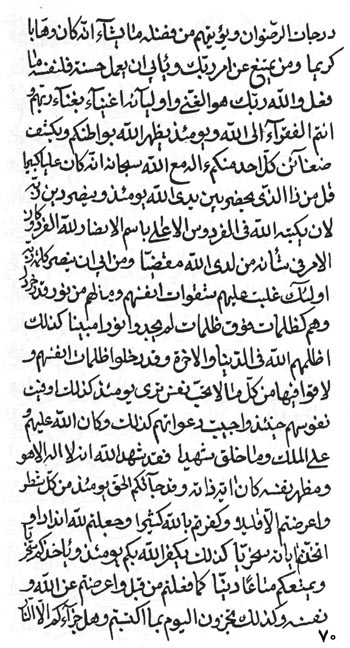 درجات الرضوان ويؤتيهم من فضله ما يشآء انه كان وهابا
كريما ومن يمتنع عن امر ربك ويابى ان يعمل حسنة فلنفسه ما
فعل والله ربك هو الغني و اوليآئه اغنيآء بغنآء ربهم و
انتم الفقرآء الى الله و يومئذ يظهر الله بواطنكم ويكشف
ضغائن كل احد منكم ءاله مع الله سبحانه انه كان عليا كبيرا
قل من ذا الذي يحضر بين يدي الله يومئذ وينصر دين ربه
لان يكتبه الله في الفردوس الاعلى باسم الانصار لله الفرد و كان
الامر في شأنه من لدى الله مقضيا ومن ابى ان ينصر كلمة ربه
اولئك غلبت عليهم شقوات انفسهم و مالهم من نور قدر خردل
وهم كظلمات فوق ظلمات لم يجدوا نورا مبينا كذلك
اظلمهم الله في الدنيا و الاخرة وقد دخلوا ظلمات انفسهم و
لاقوا فيها من كل ما لا يحب نفس يومئذ كذلك اوفيت
نفوسهم حينئذ واجيب دعواتهم كذلك وكان الله عليهم و
على الملك وما خلق شهيدا فقد شهد الله انه لا اله الا هو
ومظهر نفسه كان ذاته وقد جائكم الحق يومئذ من كل شطر
واعرضتم الا قليلا و كفرتم بالله كثيرا وجعلتم لله اندادا و
اتخذتم باياته سخريا كذلك يكفر الله بكم يومئذ و ياخذكم
ويمتعكم متاعا دنيا كما فعلتم من قبل واعرضتم عن الله و
نفسه وكذلك تجزون اليوم بما اكتسبتم وهل جزآءكم الا النار
٧٠